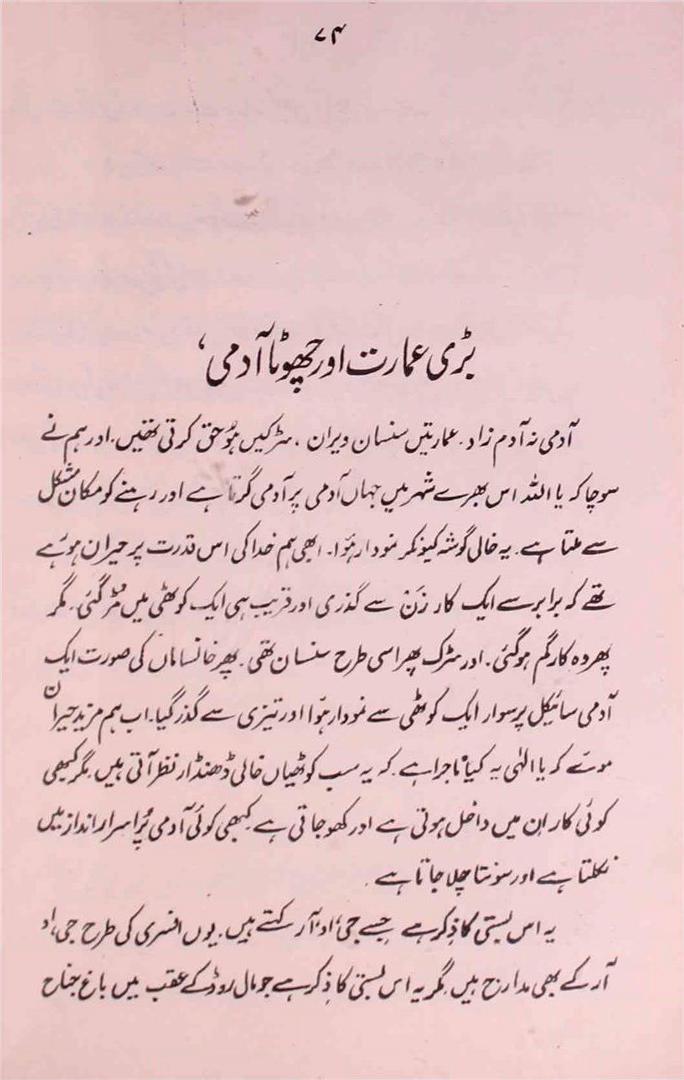 ۷۴
بڑی عمارت اور چھوٹا آدمی،
آدمی نہ آدم زاد۔ عمارتیں سنسان ویران، سڑکیں ہُو حق کرتی تھیں۔ اور ہم نے
سوچا کہ یا اللہ اس بھرے شہر میں جہاں آدمی پر آدمی گرتا ہے اور رہنے کو مکان مشکل
سے ملتا ہے۔ یہ خالی گوشہ کیونکر نمودار ہُوا۔ ابھی ہم خدا کی اس قدرت پر حیران ہوئے
تھے کہ برابر سے ایک کار زَن سے گذری اور قریب ہی ایک کوٹھی میں مُڑ گئی۔ مگر
پھر وہ کار گم ہو گئی۔ اور سڑک پھر اسی طرح سنسان تھی۔ پھر خانساماں کی صورت ایک
آدمی سائیکل پر سوار ایک کوٹھی سے نمودار ہُوا اور تیزی سے گذر گیا۔ اب ہم مزید حیران
ہوئے کہ یا الٰہی یہ کیا ماجرا ہے کہ یہ سب کوٹھیاں خالی ڈھنڈار نظر آتی ہیں۔ مگر کبھی
کوئی کار ان میں داخل ہوتی ہے اور کھو جاتی ہے۔ کبھی کوئی آدمی پُراسرار انداز میں
نکلتا ہے اور سونتا چلا جاتا ہے۔
یہ اس بستی کا ذکر ہے جسے جی، او، آر کہتے ہیں۔ یوں افسری کی طرح جی، او
آر کے بھی مدارج ہیں۔ مگر یہ اس بستی کا ذکر ہے جو مال روڈ کے عقب میں باغِ جناح